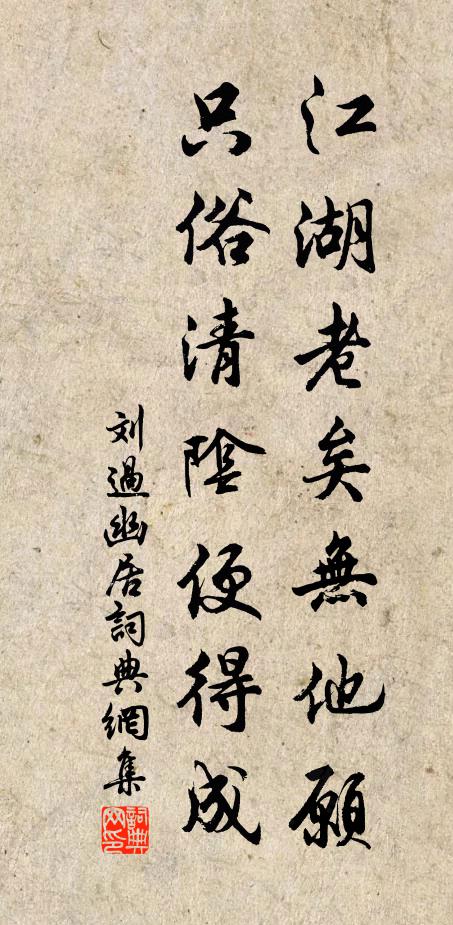 江湖老矣無他願
只俗清陰便得成
刘過幽居詞典網集
詞典網印